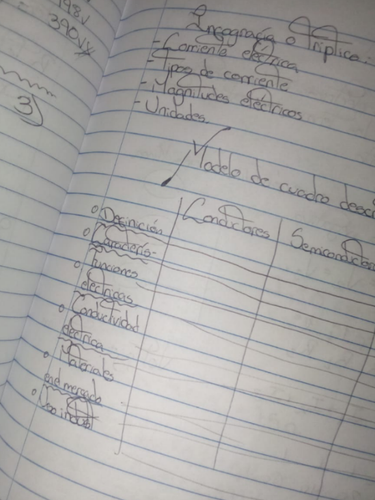 198V
390V
3)
Infografía o Triptico:
- Corriente eléctrica
- Tipos de corriente
- Magnitudes eléctricos
- Unidades
Modelo de cuadro
Conductores
Semiconductores
◦ Definición
◦ Caracterís-
◦ Funciones
eléctricas
◦ Conductividad
eléctrica
◦ Materiales
en el mercado